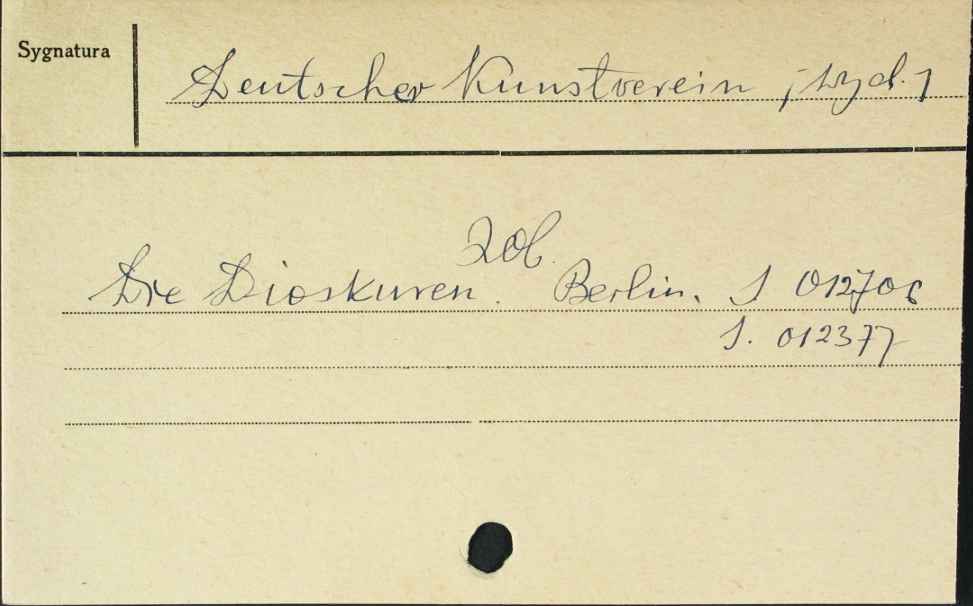 Sygnatura
Deutscher Kunstverein, [wyd.]
Zob.
Die Dioskuren. Berlin. S 012706
S. 012377